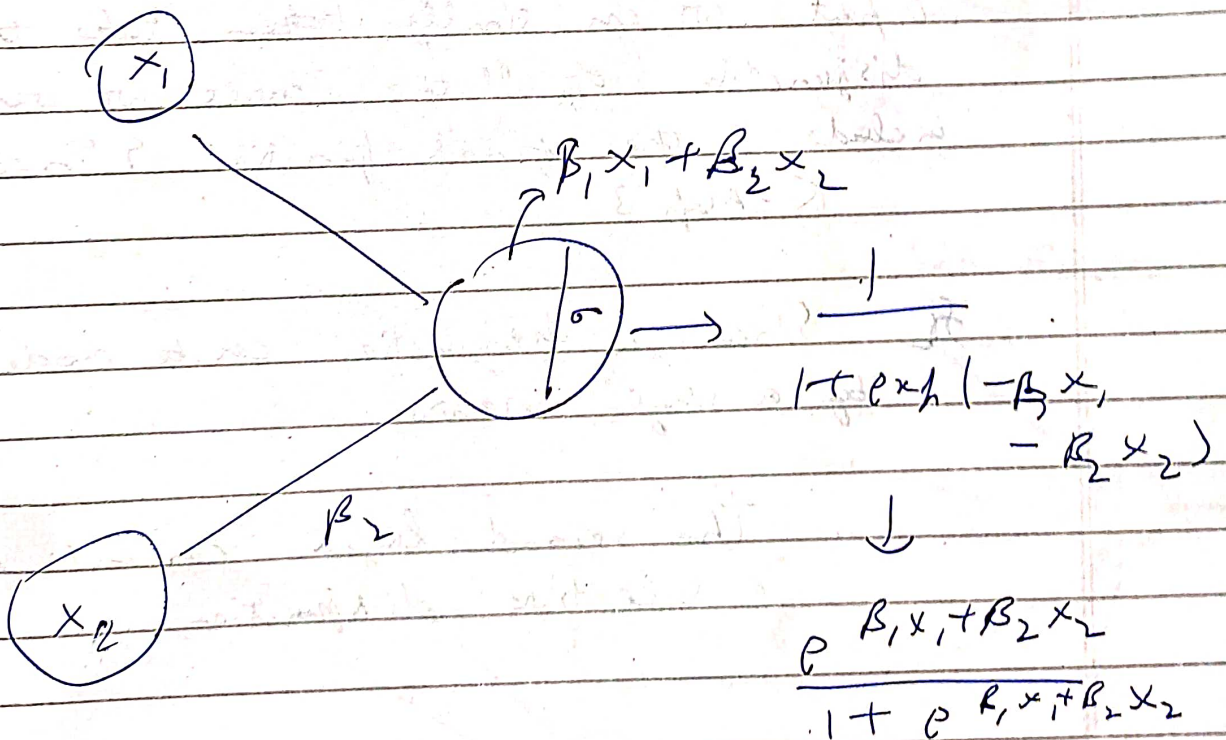 x₁
β₁x₁ + β₂x₂
σ
1
1 + exp(-β₁x₁
- β₂x₂)
β₂
x₂
e^{β₁x₁+β₂x₂}
1 + e^{β₁x₁+β₂x₂}